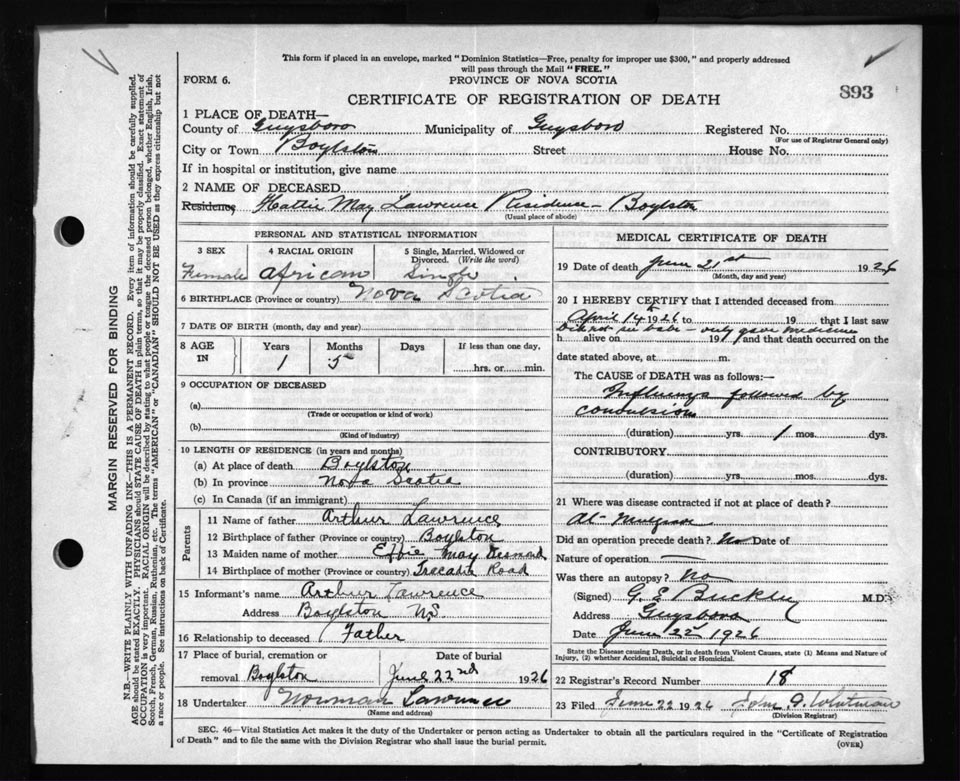 This form if placed in an envelope, marked "Dominion Statistics—Free, penalty for improper use $300," and properly addressed
will pass through the Mail "FREE."
FORM 6.
PROVINCE OF NOVA SCOTIA
CERTIFICATE OF REGISTRATION OF DEATH
893
1 PLACE OF DEATH—
County of Guysboro Municipality of Guysboro Registered No.
(For use of Registrar General only)
City or Town Boylston Street House No.
If in hospital or institution, give name
2 NAME OF DECEASED
Residence Hattie May Lawrence Residence - Boylston
(Usual place of abode)
PERSONAL AND STATISTICAL INFORMATION
3 SEX 4 RACIAL ORIGIN 5 Single, Married, Widowed or
Divorced. (Write the word)
Female African Single
6 BIRTHPLACE (Province or country) Nova Scotia
7 DATE OF BIRTH (month, day and year)
8 AGE IN Years Months Days If less than one day,
1 5 hrs. or min.
9 OCCUPATION OF DECEASED
(a)
(Trade or occupation or kind of work)
(b)
(Kind of industry)
10 LENGTH OF RESIDENCE (in years and months)
(a) At place of death Boylston
(b) In province Nova Scotia
(c) In Canada (if an immigrant)
Parents
11 Name of father Arthur Lawrence
12 Birthplace of father (Province or country) Boylston
13 Maiden name of mother Effie May Desmond
14 Birthplace of mother (Province or country) Tracadie Road
15 Informant's name Arthur Lawrence
Address Boylston N.S.
16 Relationship to deceased Father
17 Place of burial, cremation or Date of burial
removal Boylston June 22nd 1926
18 Undertaker Norman Lawrence
(Name and address)
MEDICAL CERTIFICATE OF DEATH
19 Date of death June 21st 1926
(Month, day and year)
20 I HEREBY CERTIFY that I attended deceased from
April 14th 1926 to 19 that I last saw
Did not see babe - only gave medicine
h alive on 191 and that death occurred on the
date stated above, at m.
The CAUSE of DEATH was as follows:—
followed by
convulsions
(duration) yrs. 1 mos. dys.
CONTRIBUTORY
(duration) yrs. mos. dys.
21 Where was disease contracted if not at place of death?
At
Did an operation precede death? No Date of
Nature of operation
Was there an autopsy? No
(Signed) G. E. Buckley M.D.
Address Guysboro
Date June 22nd 1926
State the Disease causing Death, or in death from Violent Causes, state (1) Means and Nature of
Injury, (2) whether Accidental, Suicidal or Homicidal.
22 Registrar's Record Number 18
23 Filed June 22 1926 John A. Whitman
(Division Registrar)
SEC. 46—Vital Statistics Act makes it the duty of the Undertaker or person acting as Undertaker to obtain all the particulars required in the "Certificate of Registration
of Death" and to file the same with the Division Registrar who shall issue the burial permit.
(OVER)
MARGIN RESERVED FOR BINDING
N.B.—WRITE PLAINLY WITH UNFADING INK—THIS IS A PERMANENT RECORD. Every item of information should be carefully supplied.
AGE should be stated EXACTLY. PHYSICIANS should STATE CAUSE OF DEATH in plain terms, so that it may be properly classified. Exact statement of
OCCUPATION is very important. RACIAL ORIGIN will be described by stating to what people or tongue the deceased person belonged, whether English, Irish,
Scotch, French, German, Russian, Ruthenian, etc. The terms "AMERICAN" or "CANADIAN" SHOULD NOT BE USED as they express citizenship but not
a race or people. See instructions on back of Certificate.